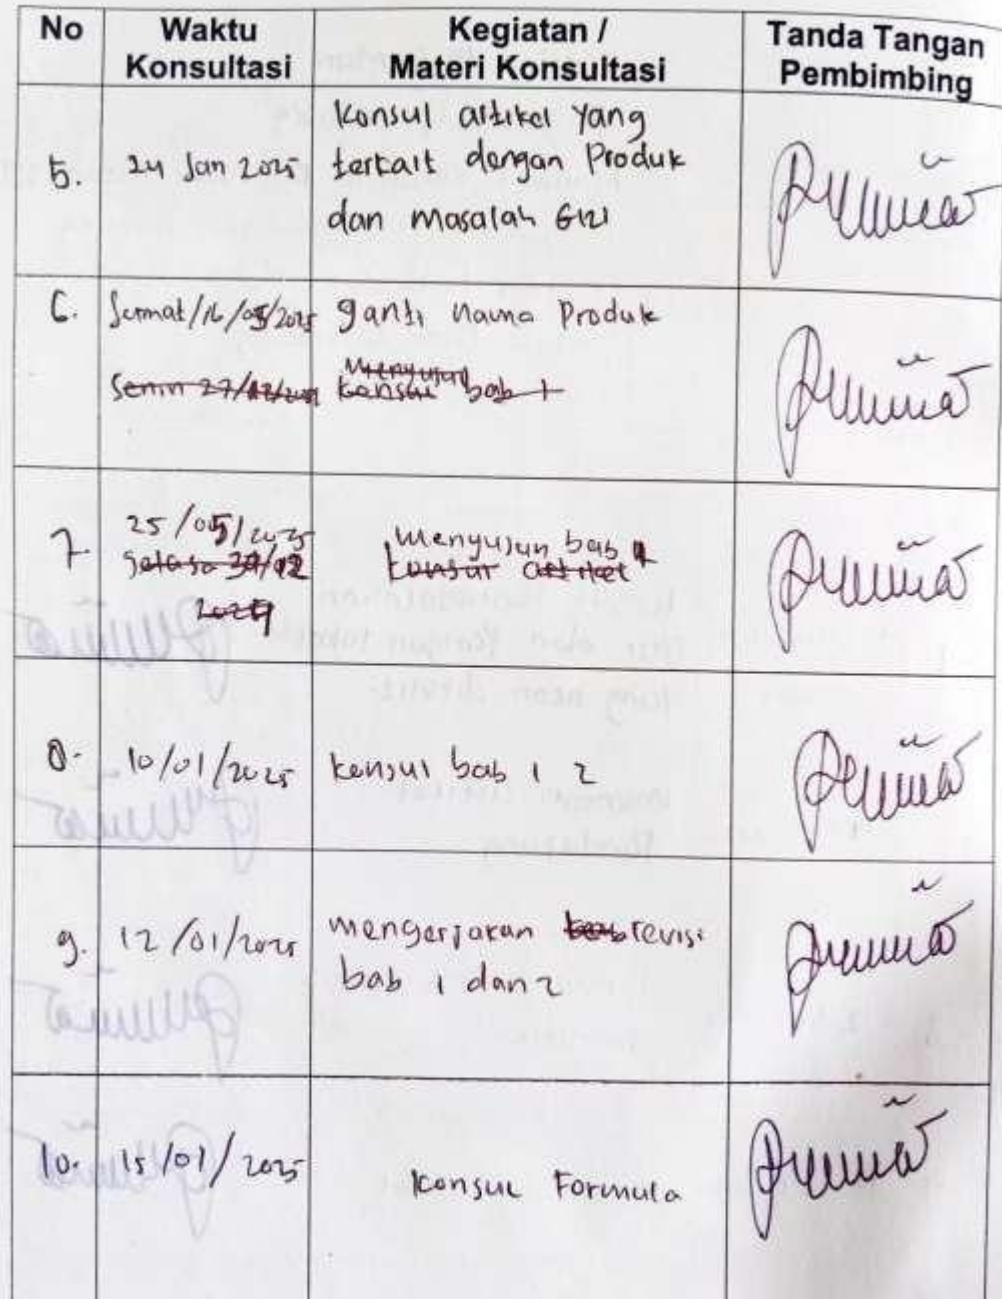 No Waktu Konsultasi Kegiatan / Materi Konsultasi Tanda Tangan Pembimbing
5. 24 Jan 2025 Konsul artikel yang
terkait dengan Produk
dan masalah Gizi
6. Jumat/16/05/2025 ganti nama Produk
Senin 27/12/ Menyusun
konsul bab 1
7. 25/05/2025 Menyusun bab
Selasa 30/12 konsul artikel
2024
8. 10/01/2025 konsul bab 1 2
9. 12/01/2025 mengerjakan bab revisi
bab 1 dan 2
10. 15/01/2025 Konsul Formula